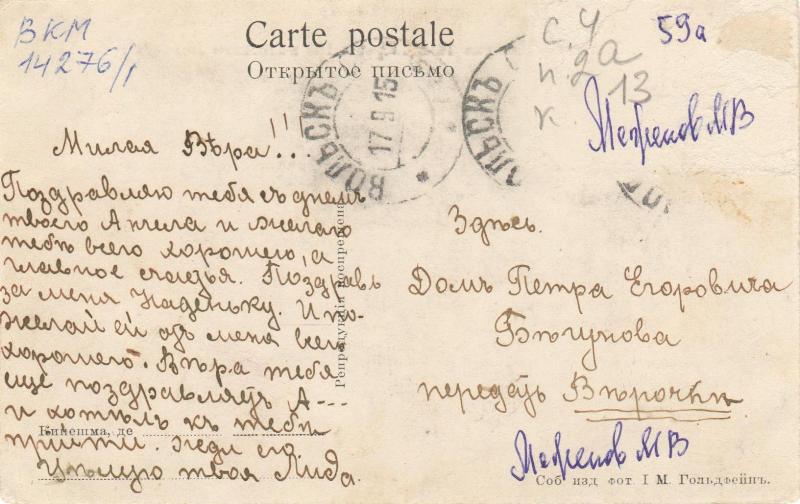 ВКМ
14276/1
Carte postale
Открытое письмо
ВОЛЬСКЪ
17 9 15
ВОЛЬСКЪ
с. 4
п. 2а
к. 13
59а
МВ
Милая Вѣра!!!
Поздравляю тебя съ днемъ
твоего Ангела и желаю
тебѣ всего хорошего, а
главное счастья. Поздравь
за меня Наденьку. И по-
желай ей отъ меня всего
хорошего. Вѣра тебя
еще поздравляетъ А---
и хотѣлъ къ тебѣ
прийти. Жди его.
Цѣлую твоя Лида.
Кинешма, де
Репродукція воспрещена
Здѣсь.
Домъ Петра Егоровича
Бѣгунова
передать Вѣрочкѣ
МВ
Соб изд фот. І М. Гольдфейнъ.